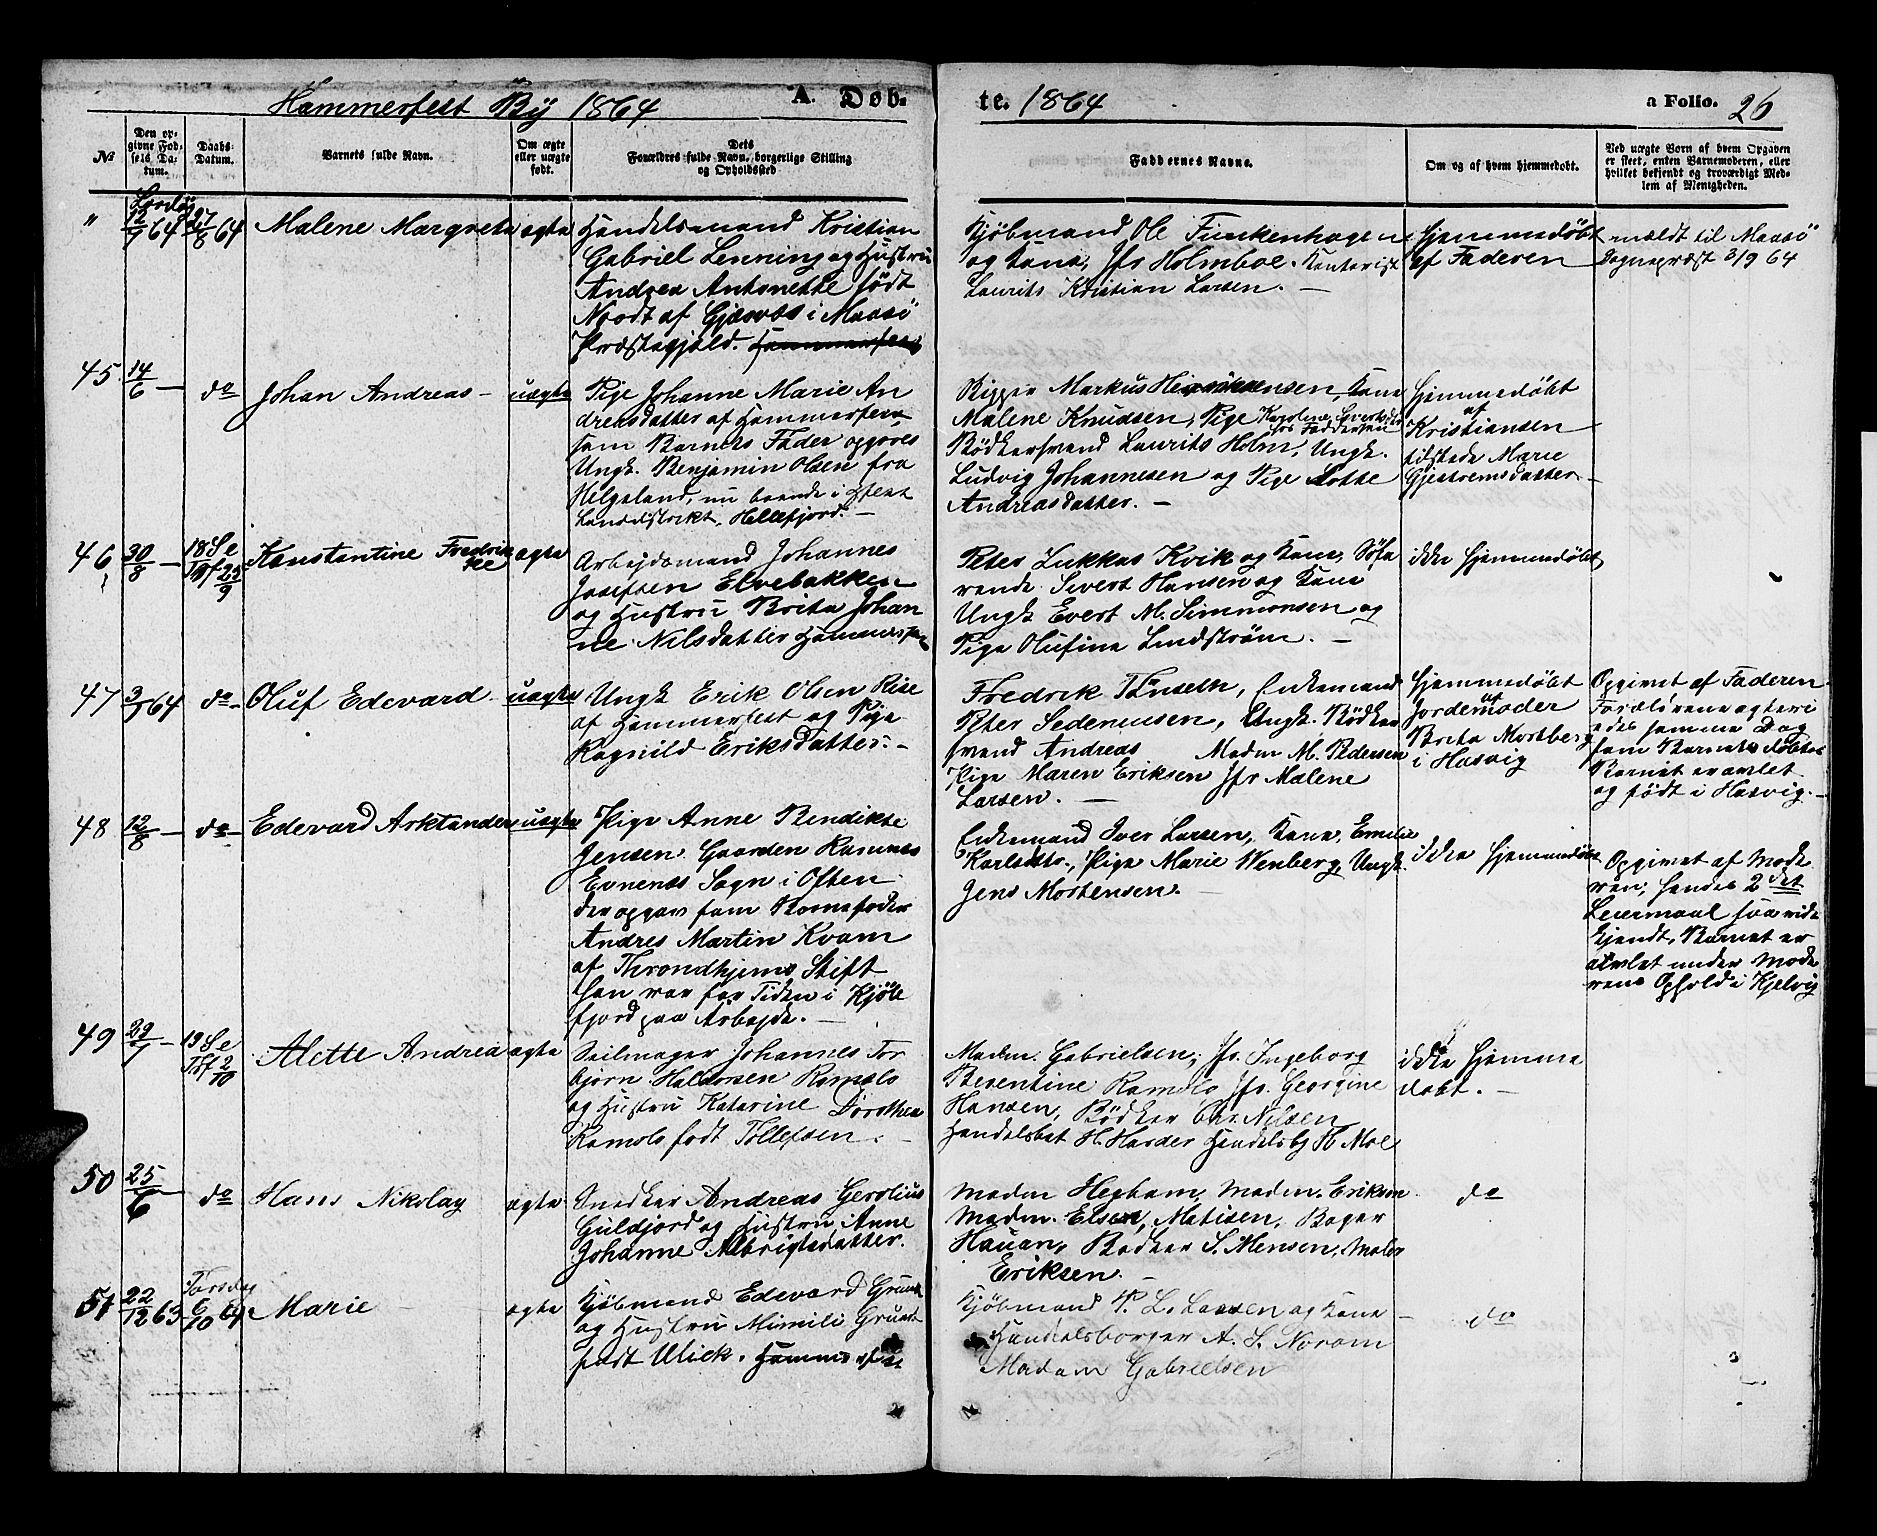 Hammerfest By 1864
A. Døb-
te. 1864
a Folio. 26
No
Den op-
givne Fød-
sels Da-
tum.
Daabs-
Datum.
Barnets fulde Navn.
Om ægte
eller uægte
født.
Dets
Forældres fulde Navn, borgerlige Stilling
og Opholdssted
Faddernes Navne.
Om og af hvem hjemmedøbt.
Ved uægte Børn af hvem Opgaven
er skeet, enten Barnemoderen, eller
hvilket bekjendt og troværdigt Med-
lem af Menigheden.
" 12/7 64 Lørdag 27/8 64 Malene Margrete ægte
Handelsmand Kristian
Gabriel Lenning og Hustru
Andrea Antonette født
Noodt af Gjæsvær i Maasø
Præstegjæld. Hammerfest
Kjøbmand Ole Finckenhagen
og Kone, Jfr Holmboe. Kontorist
Laurits Kristian Larsen. —
Hjemmedøbt
af Faderen
mældt til Maasø
Sognepræst 3/9 64
45 14/6 — do Johan Andreas — uægte
Pige Johanne Marie An
dreasdatter af Hammerfest
som Barnets Fader opgives
Ungk. Benjamin Olsen fra
Helgeland, nu boende i
Landdistrikt, Hellefjord. —
Rigger Markus Henriksen, Kone
Malene Knudsen, Pige Karoline
Bødkersvend Laurits Holm, Ungk.
Ludvig Johannesen og Pige Lotte
Andreasdatter. —
Hjemmedøbt
af
Kristiansen
tilstede Marie
46 30/8 — 18 Se
Trf 25/9
Konstantine Fredrik
ke ægte
Arbejdsmand Johannes
Josefsen Elvebakken
og Hustru Brita Johan
ne Nilsdatter Hammerfest
Peter Lukkas Kvik og Kone, Søfa
rende Sivert Hansen og Kone
Ungk Evert M. Simmonsen og
Pige Olufine Lindstrøm. —
ikke Hjemmedøbt
47 3/7 64 do Oluf Edevard uægte
Ungk Erik Olsen Rise
af Hammerfest og Pige
Ragnild Eriksdatter. —
Fredrik, Enkemand
Peter, Ungk. Bødker
svend Andreas Madm M. Pedersen
Pige Maren Eriksen Jfr Malene
Larsen. —
Hjemmedøbt
af
Jordemoder
Brita Mortberg
i Hasvig
Opgivet af Faderen
Forældrene ægtevi
edes samme Dag
som Barnet døbtes
Barnet er avlet
og født i Hasvig. —
48 12/8 — do Edevard Arktander uægte
Pige Anne Bendikte
Jensen Gaarden Ramnes
Evenes Sogn i Ofoten
der opgav som Barnefader
Andres Martin Kvam
af Throndhjems Stift
han var for Tiden i Kjølle
fjord paa Arbejde. —
Enkemand Iver Larsen, Kone, Emelie
Karlsdtr., Pige Marie Wenberg, Ungk.
Jens Mortensen. —
ikke Hjemmedøbt
Opgivet af Mode
ren, hendes 2det
Leiermaal saavidt
kjendt, Barnet er
avlet under Mode
rens Ophold i Kjelvig
49 29/7 — 19 Se
Trf 2/10
Alette Andrea ægte
Seilmager Johannes Tor
bjørn Halvorsen Ramslo
og Hustru Katarine Dorothea
Ramslo født Tollefsen. —
Madm. Gabrielsen, Jfr. Ingeborg
Berentine Ramslo Jfr. Georgine
Hansen, Bødker Chr. Nilsen
Handelsbet H. Harder Handelsbg H Moe
ikke Hjemme
døbt. —
50 25/6 — do Hans Nikolay ægte
Snedker Andreas Gerolius
Guldjord og Hustru Anne
Johanne Albrigtsdatter.
Madm Hegham, Madm. Eriksen
Madm. Elsen, Matisen, Bager
Hauan, Bødker S. Monsen, Maler
Eriksen. —
do
51 22/12 63 Torsdag
6/10 64 Marie — ægte
Kjøbmand Edevard Grundt
og Hustru Mimili Grundt
født Ulick. Hammerfest
Kjøbmand P. L. Laesen og Kone —
Handelsborger A. S. Norum
Madam Gabrielsen
do